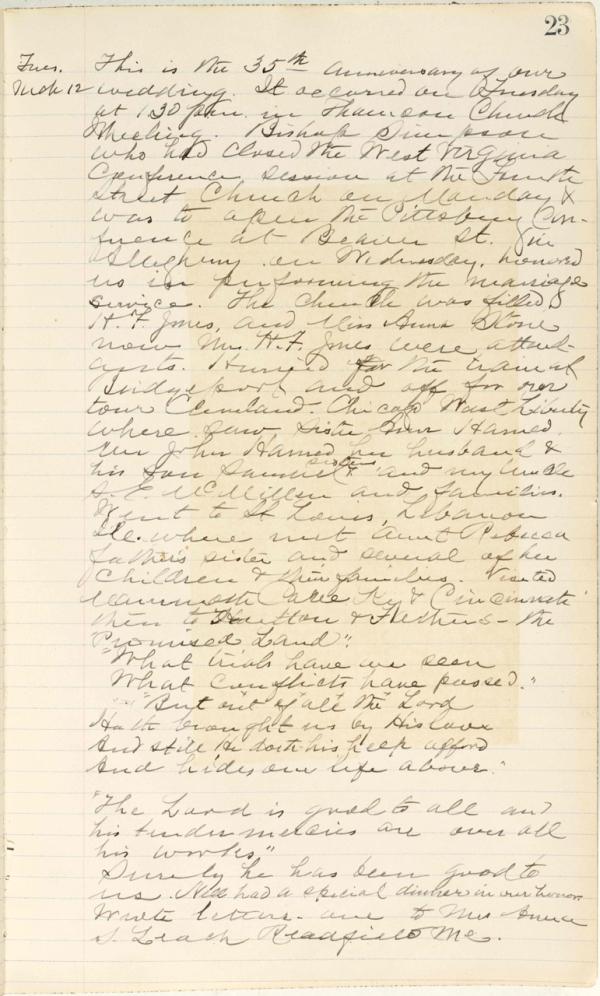 23
Tues. This is the 35th anniversary of our
Mch 12 wedding. It occurred on Tuesday
at 1.30 p.m. in Thomson Church
Wheeling. Bishop Simpson
who had closed the West Virginia
Conference session at the Fourth
Street Church on Monday &
was to open the Pittsburg Con-
ference at Beaver St. in
Allegheny on Wednesday, honored
us in performing the marriage
service. The church was filled &
H. F. Jones, and Miss Anna Stone
now Mrs. H. F. Jones were attend-
ants. Hurried for the train at
Bridgeport and off for our
tour Cleveland. Chicago West Liberty
where saw sister Harned.
Rev John Harned her husband &
his son Samuel & sister and my Uncle
S. E. McMillen and families.
Went to St Louis, Lebanon
Ills. where met Aunt Rebecca
father's sister and several of her
children & their families. Visited
Mammoth Cave Ky & Cincinnati
then to & - the
"Promised Land".
"What trials have we seen
What conflicts have passed."
"But out of all the Lord
Hath brought us by His love
And still He doth his help afford
And hides our life above."
"The Lord is good to all and
his tender mercies are over all
his works"
Surely he has been good to
us. had a special dinner in our honor
Wrote letters - one to Mrs
S. Leach Readfield Me.